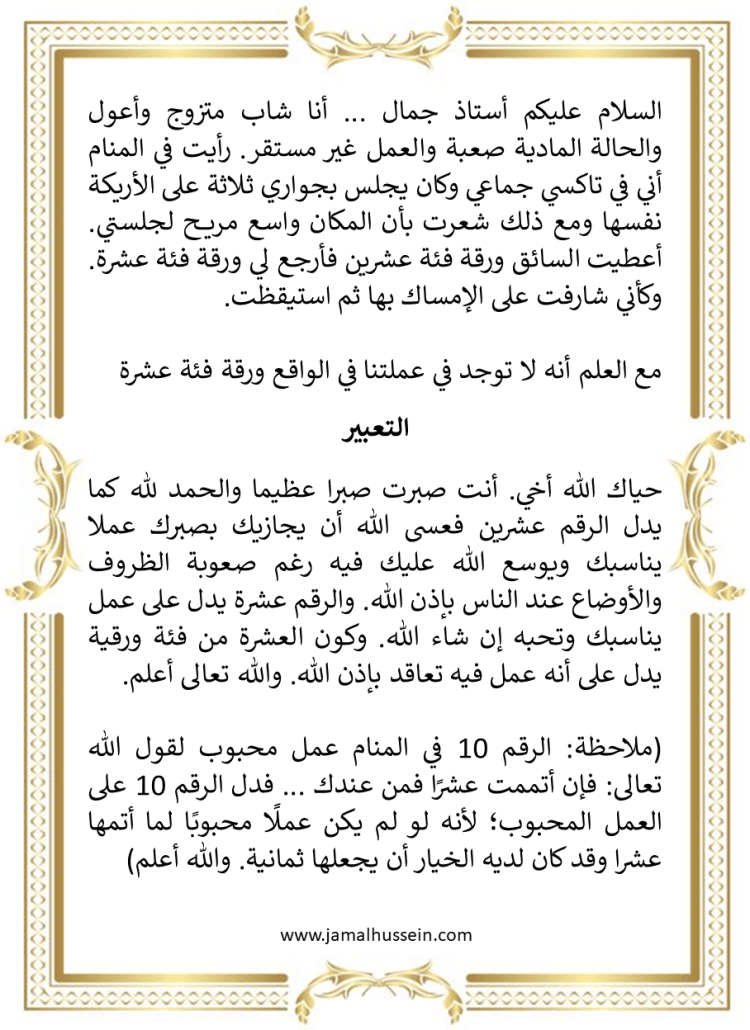 السلام عليكم أستاذ جمال ... أنا شاب متزوج وأعول
والحالة المادية صعبة والعمل غير مستقر. رأيت في المنام
أني في تاكسي جماعي وكان يجلس بجواري ثلاثة على الأريكة
نفسها ومع ذلك شعرت بأن المكان واسع مريح لجلستي.
أعطيت السائق ورقة فئة عشرين فأرجع لي ورقة فئة عشرة.
وكأني شارفت على الإمساك بها ثم استيقظت.
مع العلم أنه لا توجد في عملتنا في الواقع ورقة فئة عشرة
التعبير
حياك الله أخي. أنت صبرت صبرا عظيما والحمد لله كما
يدل الرقم عشرين فعسى الله أن يجازيك بصبرك عملا
يناسبك ويوسع الله عليك فيه رغم صعوبة الظروف
والأوضاع عند الناس بإذن الله. والرقم عشرة يدل على عمل
يناسبك وتحبه إن شاء الله. وكون العشرة من فئة ورقية
يدل على أنه عمل فيه تعاقد بإذن الله. والله تعالى أعلم.
(ملاحظة: الرقم 10 في المنام عمل محبوب لقول الله
تعالى: فإن أتممت عشرًا فمن عندك ... فدل الرقم 10 على
العمل المحبوب؛ لأنه لو لم يكن عملًا محبوبًا لما أتمها
عشرا وقد كان لديه الخيار أن يجعلها ثمانية. والله أعلم)
www.jamalhussein.com